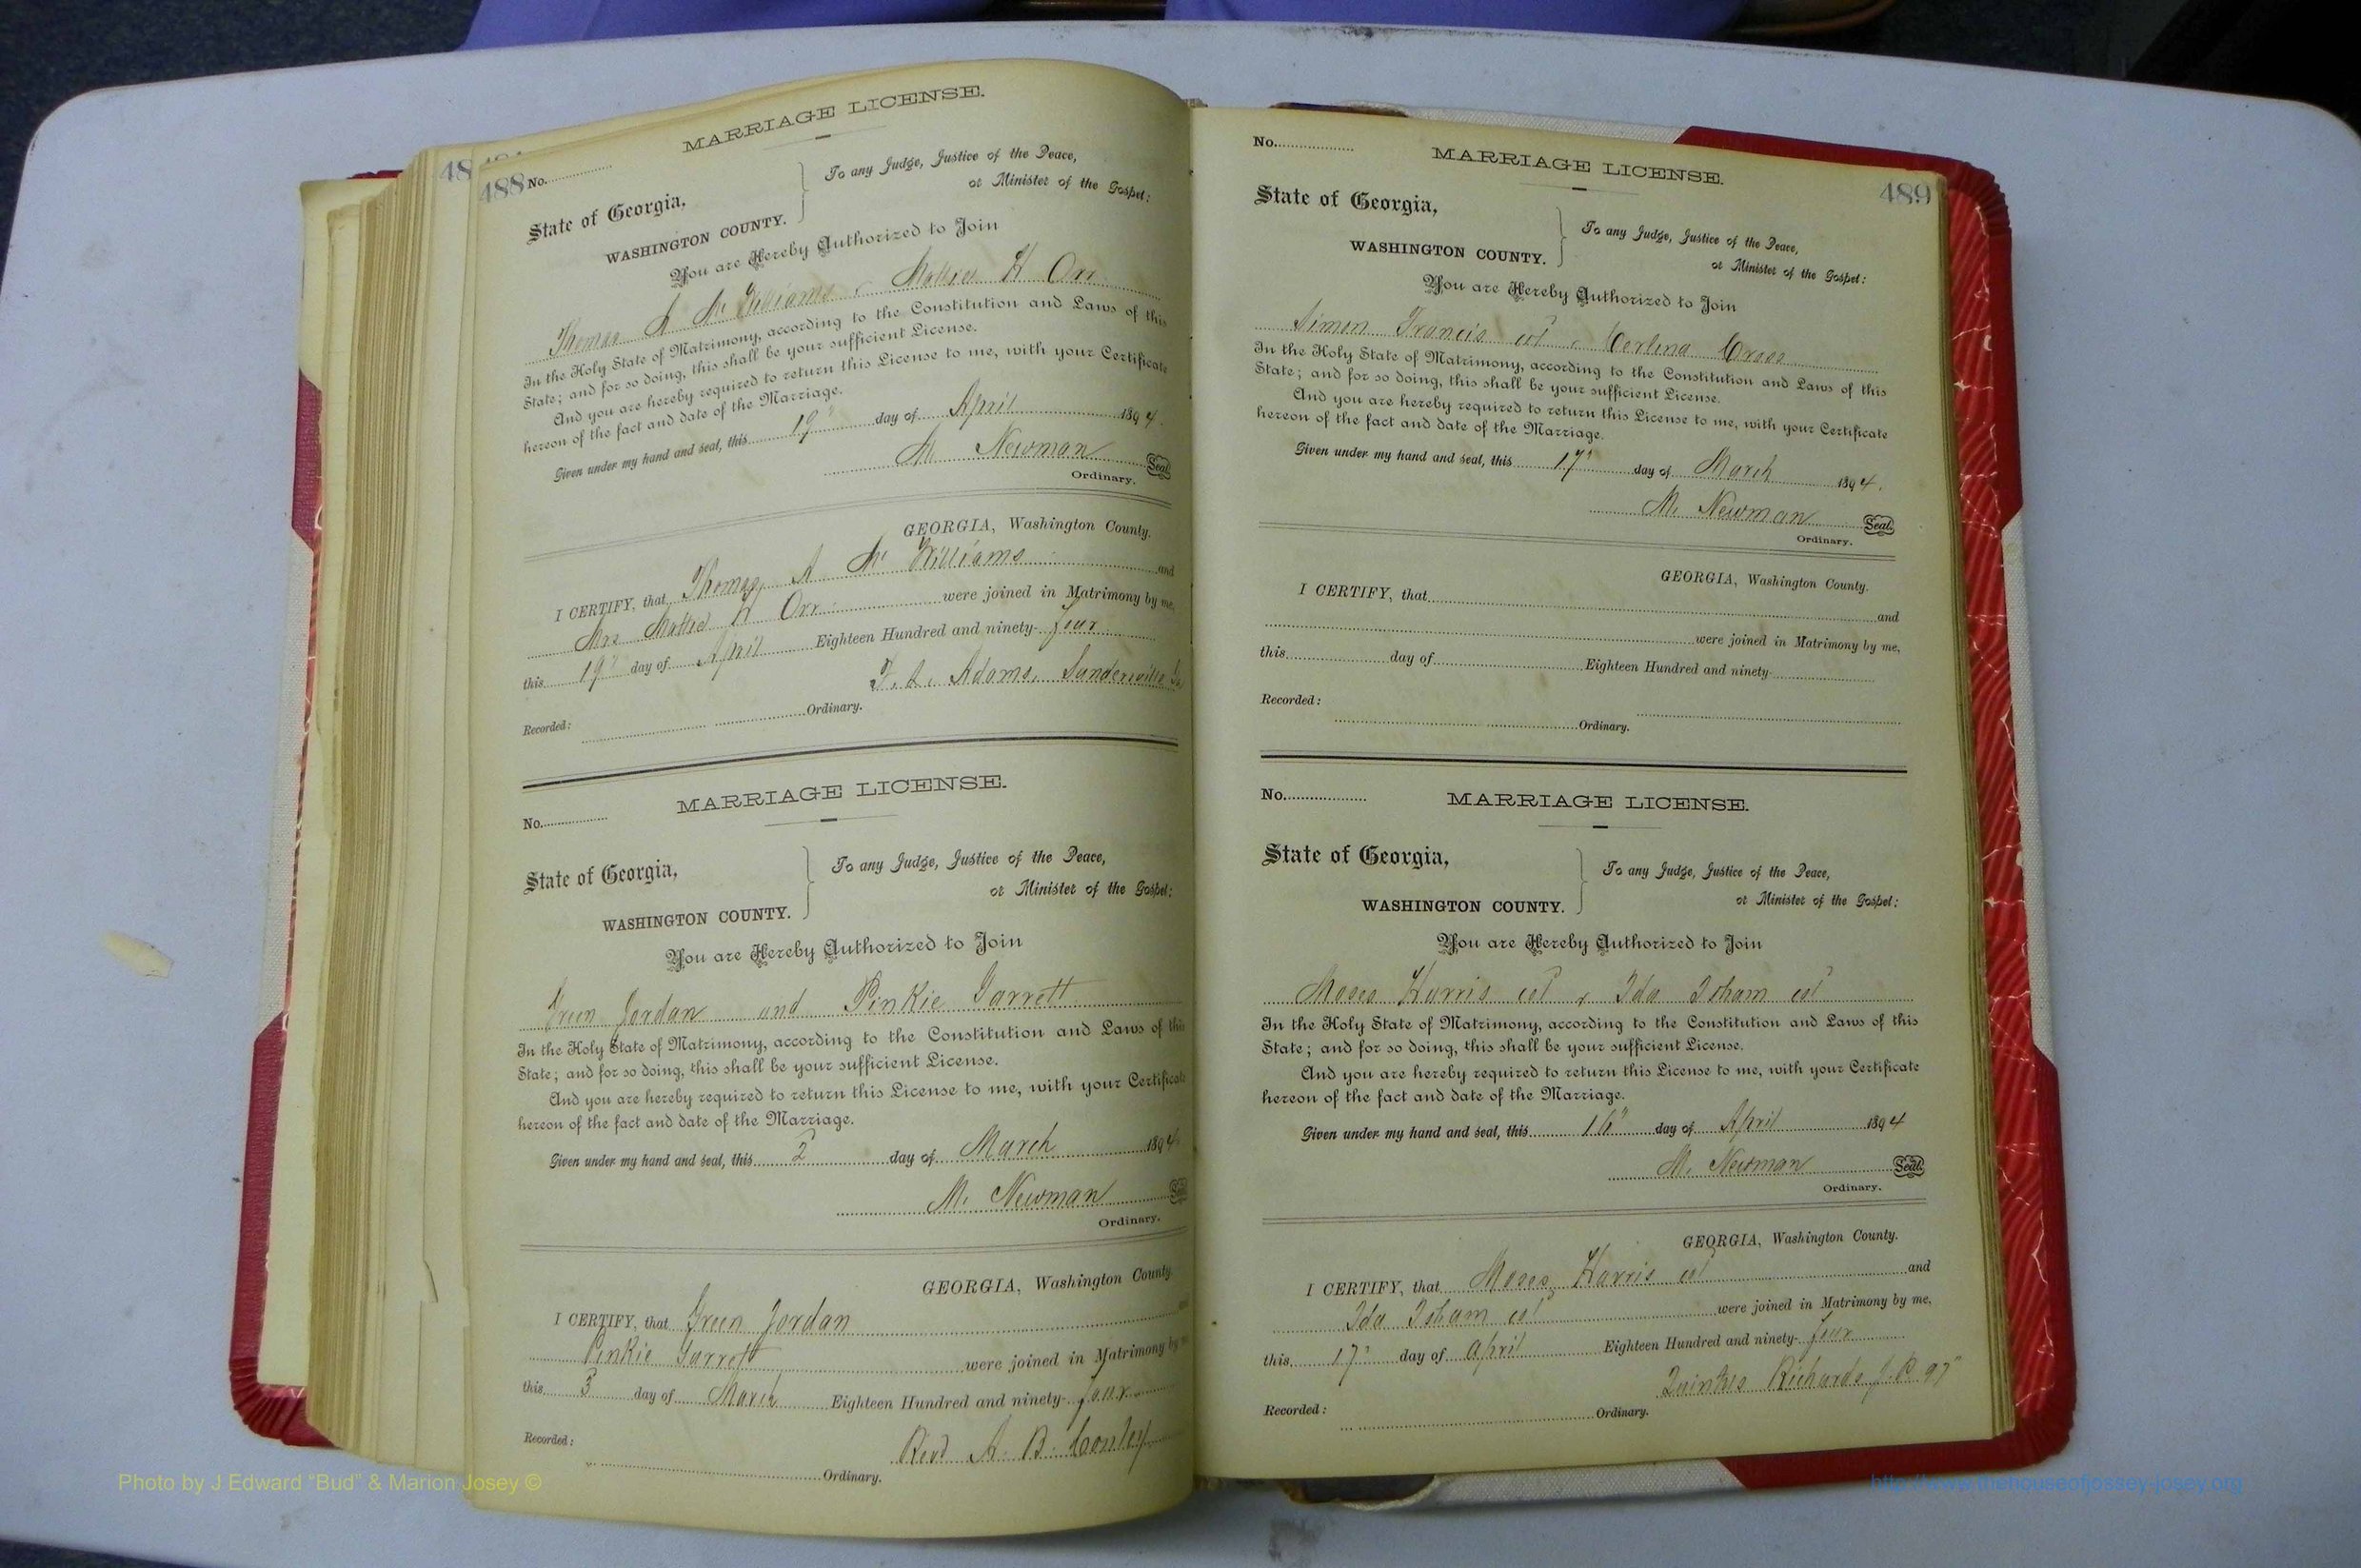 488
No.
MARRIAGE LICENSE.
State of Georgia,
WASHINGTON COUNTY.
To any Judge, Justice of the Peace,
or Minister of the Gospel:
You are Hereby Authorized to Join
Thomas A Mc Williams & Mattie H Orr
In the Holy State of Matrimony, according to the Constitution and Laws of this
State; and for so doing, this shall be your sufficient License.
And you are hereby required to return this License to me, with your Certificate
hereon of the fact and date of the Marriage.
Given under my hand and seal, this 19" day of April 1894.
M. Newman Seal
Ordinary.
GEORGIA, Washington County.
I CERTIFY, that Thomas A Mc Williams and
Mrs Mattie H Orr were joined in Matrimony by me,
this 19" day of April Eighteen Hundred and ninety-four
Adams, Sandersville Ga
Recorded: Ordinary.
MARRIAGE LICENSE.
No.
State of Georgia,
WASHINGTON COUNTY.
To any Judge, Justice of the Peace,
or Minister of the Gospel:
You are Hereby Authorized to Join
Green Jordan and Pinkie Garrett
In the Holy State of Matrimony, according to the Constitution and Laws of this
State; and for so doing, this shall be your sufficient License.
And you are hereby required to return this License to me, with your Certificate
hereon of the fact and date of the Marriage.
Given under my hand and seal, this 2 day of March 1894
M. Newman Seal
Ordinary.
GEORGIA, Washington County.
I CERTIFY, that Green Jordan and
Pinkie Garrett were joined in Matrimony by me
this 3 day of March Eighteen Hundred and ninety-four
Revd A. B. Conley
Recorded: Ordinary.
No.
MARRIAGE LICENSE.
489
State of Georgia,
WASHINGTON COUNTY.
To any Judge, Justice of the Peace,
or Minister of the Gospel:
You are Hereby Authorized to Join
Simon Francis col & Cross
In the Holy State of Matrimony, according to the Constitution and Laws of this
State; and for so doing, this shall be your sufficient License.
And you are hereby required to return this License to me, with your Certificate
hereon of the fact and date of the Marriage.
Given under my hand and seal, this 17" day of March 1894.
M. Newman Seal
Ordinary.
GEORGIA, Washington County.
I CERTIFY, that and
were joined in Matrimony by me,
this day of Eighteen Hundred and ninety-
Recorded: Ordinary.
No.
MARRIAGE LICENSE.
State of Georgia,
WASHINGTON COUNTY.
To any Judge, Justice of the Peace,
or Minister of the Gospel:
You are Hereby Authorized to Join
Moses Harris col & Ida Isham col
In the Holy State of Matrimony, according to the Constitution and Laws of this
State; and for so doing, this shall be your sufficient License.
And you are hereby required to return this License to me, with your Certificate
hereon of the fact and date of the Marriage.
Given under my hand and seal, this 16" day of April 1894
M. Newman Seal
Ordinary.
GEORGIA, Washington County.
I CERTIFY, that Moses Harris col and
Ida Isham col were joined in Matrimony by me,
this 17" day of April Eighteen Hundred and ninety-four
Richards J. P. 97"
Recorded: Ordinary.
Photo by J Edward "Bud" & Marion Josey ©
http://www.thehouseofjossey-josey.org